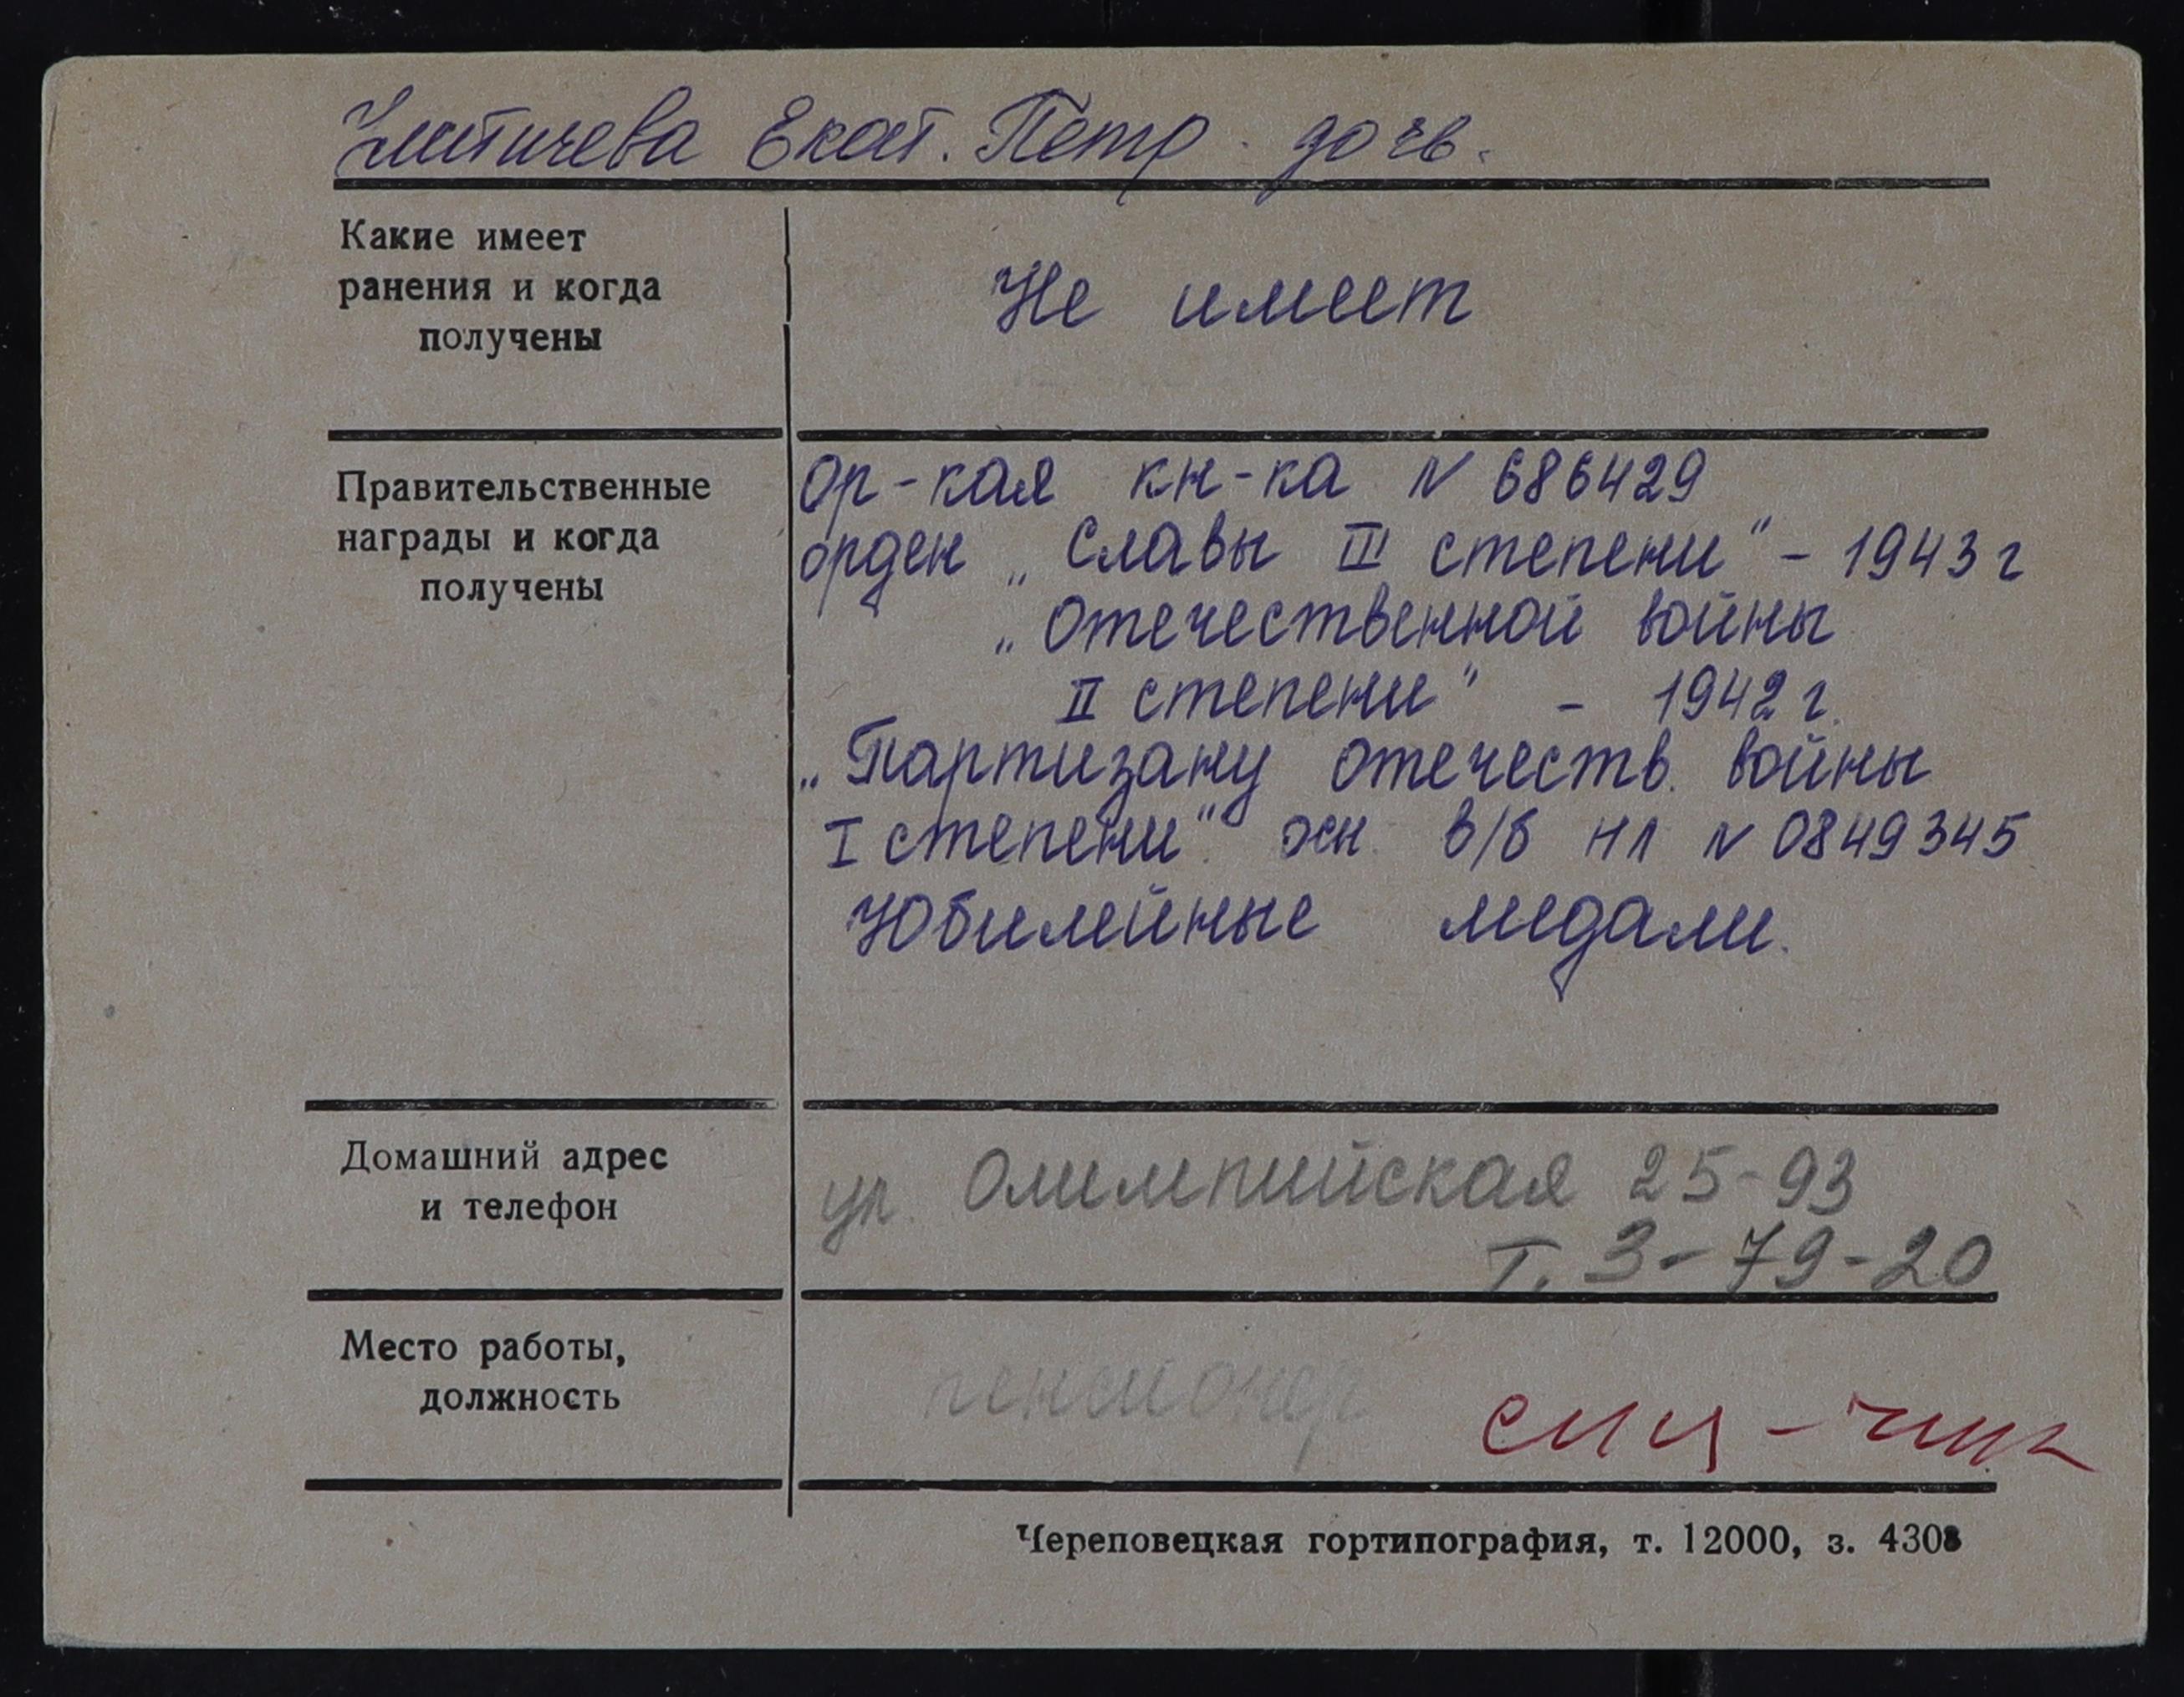 Екат. Петр. дочь.
Какие имеет
ранения и когда
получены
Не имеет
Правительственные
награды и когда
получены
Ор-кая кн-ка N 686429
орден „Славы III степени" - 1943 г
„Отечественной войны
II степени" - 1942 г.
„Партизану отечеств. войны
I степени". осн. в/б НЛ N 0849345
Юбилейные медали.
Домашний адрес
и телефон
ул. Олимпийская 25-93
т. 3-79-20
Место работы,
должность
пенсионер
Череповецкая гортипография, т. 12000, з. 4308